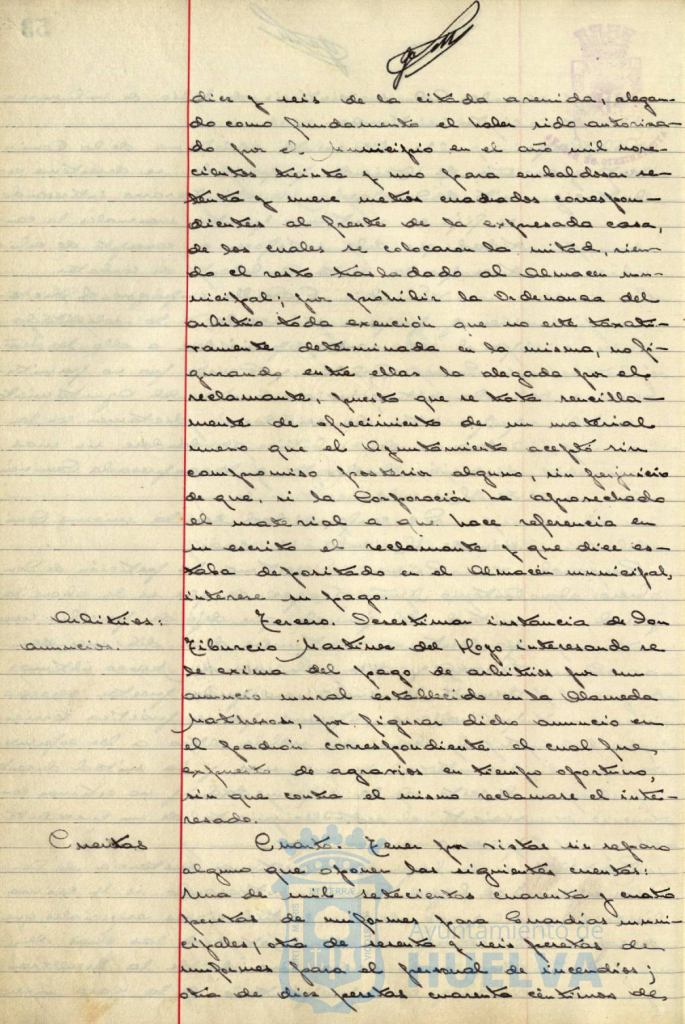 diez y seis de la citada avenida, alegan-
do como fundamento el haber sido autoriza-
do por el Municipio en el año mil nove-
cientos treinta y uno para embaldosar se-
tenta y nueve metros cuadrados correspon-
dientes al frente de la expresada casa,
de los cuales se colocaron la mitad, sien-
do el resto trasladado al Almacén mu-
nicipal; por prohibir la Ordenanza del
arbitrio toda exención que no esté taxati-
vamente determinada en la misma, no fi-
gurando entre ellas la alegada por el
reclamante, puesto que se trata sencilla-
mente de ofrecimiento de un material
nuevo que el Ayuntamiento aceptó sin
compromiso posterior alguno, sin perjuicio
de que, si la Corporación ha aprovechado
el material a que hace referencia en
su escrito el reclamante y que dice es-
taba depositado en el Almacén municipal,
interese su pago.
Arbitrios:
anuncios.
Tercero. Desestimar instancia de Don
Tiburcio Martínez del Hoyo interesando se
le exima del pago de arbitrios por un
anuncio mural establecido en la Alameda
por figurar dicho anuncio en
el padrón correspondiente el cual fue
expuesto de agravios en tiempo oportuno,
sin que contra el mismo reclamase el inte-
resado.
Cuentas
Cuarto. Tener por vistas sin reparo
alguno que oponer las siguientes cuentas:
Una de mil setecientos cuarenta y cuatro
pesetas de uniformes para Guardias muni-
cipales; otra de sesenta y seis pesetas de
uniformes para el personal de incendios;
otra de diez pesetas cuarenta céntimos de
Ayuntamiento de
HUELVA